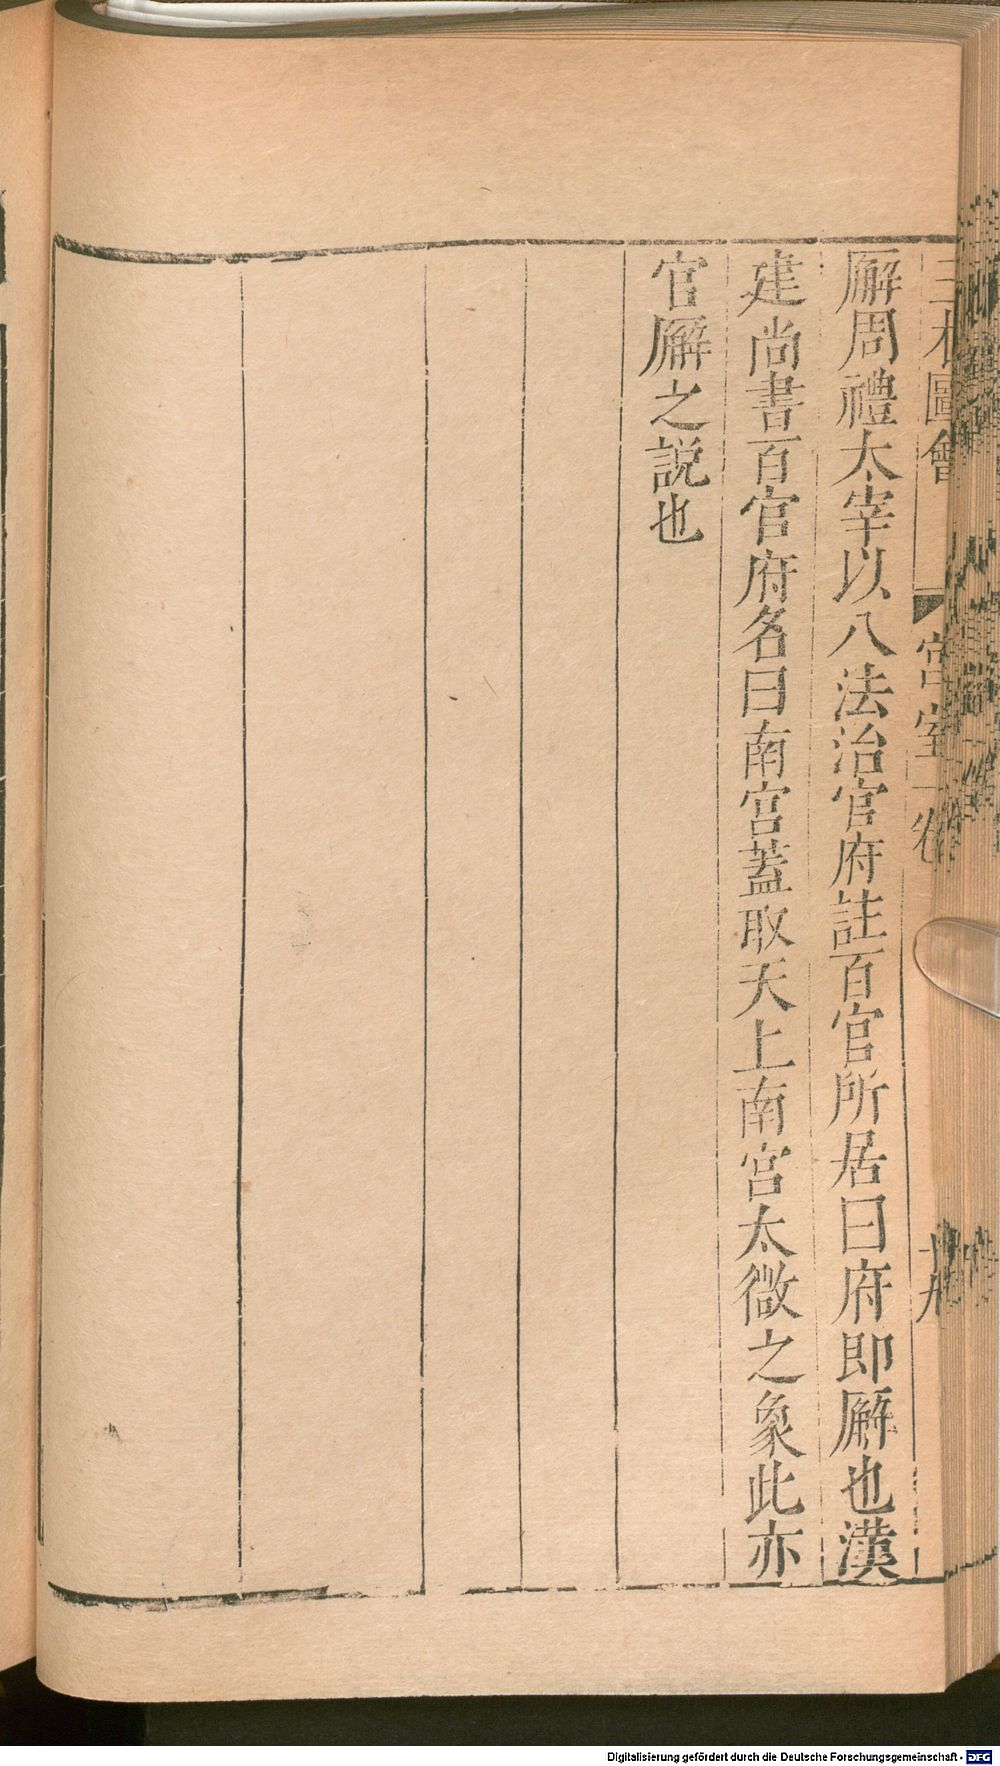 三才圖會 宮室一卷 十九
廨周禮太宰以八法治官府註百官所居曰府即廨也漢
建尚書百官府名曰南宮蓋取天上南宮太微之象此亦
官廨之説也
Digitalisierung gefördert durch die Deutsche Forschungsgemeinschaft - DFG